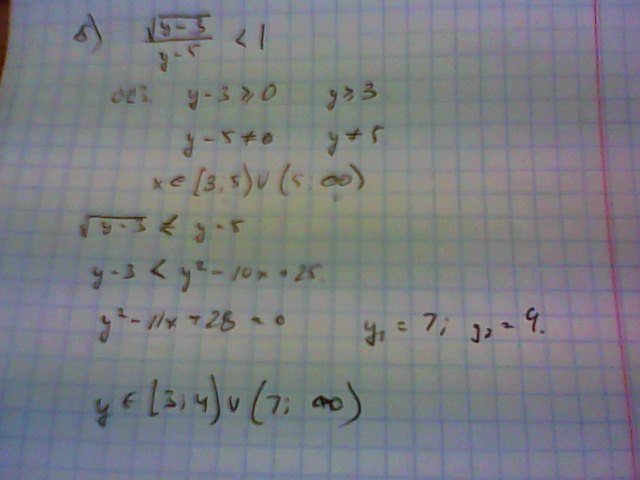 б) √(y-3)/(y-5) < 1
ОДЗ y-3≥0 y≥3
y-5≠0 y≠5
x∈[3,5)∪(5 ∞)
√(y-3) < y-5
y-3 < y²-10x+25
y²-11x+28=0 y₁=7; y₂=4.
y∈[3;4)∪(7; ∞)